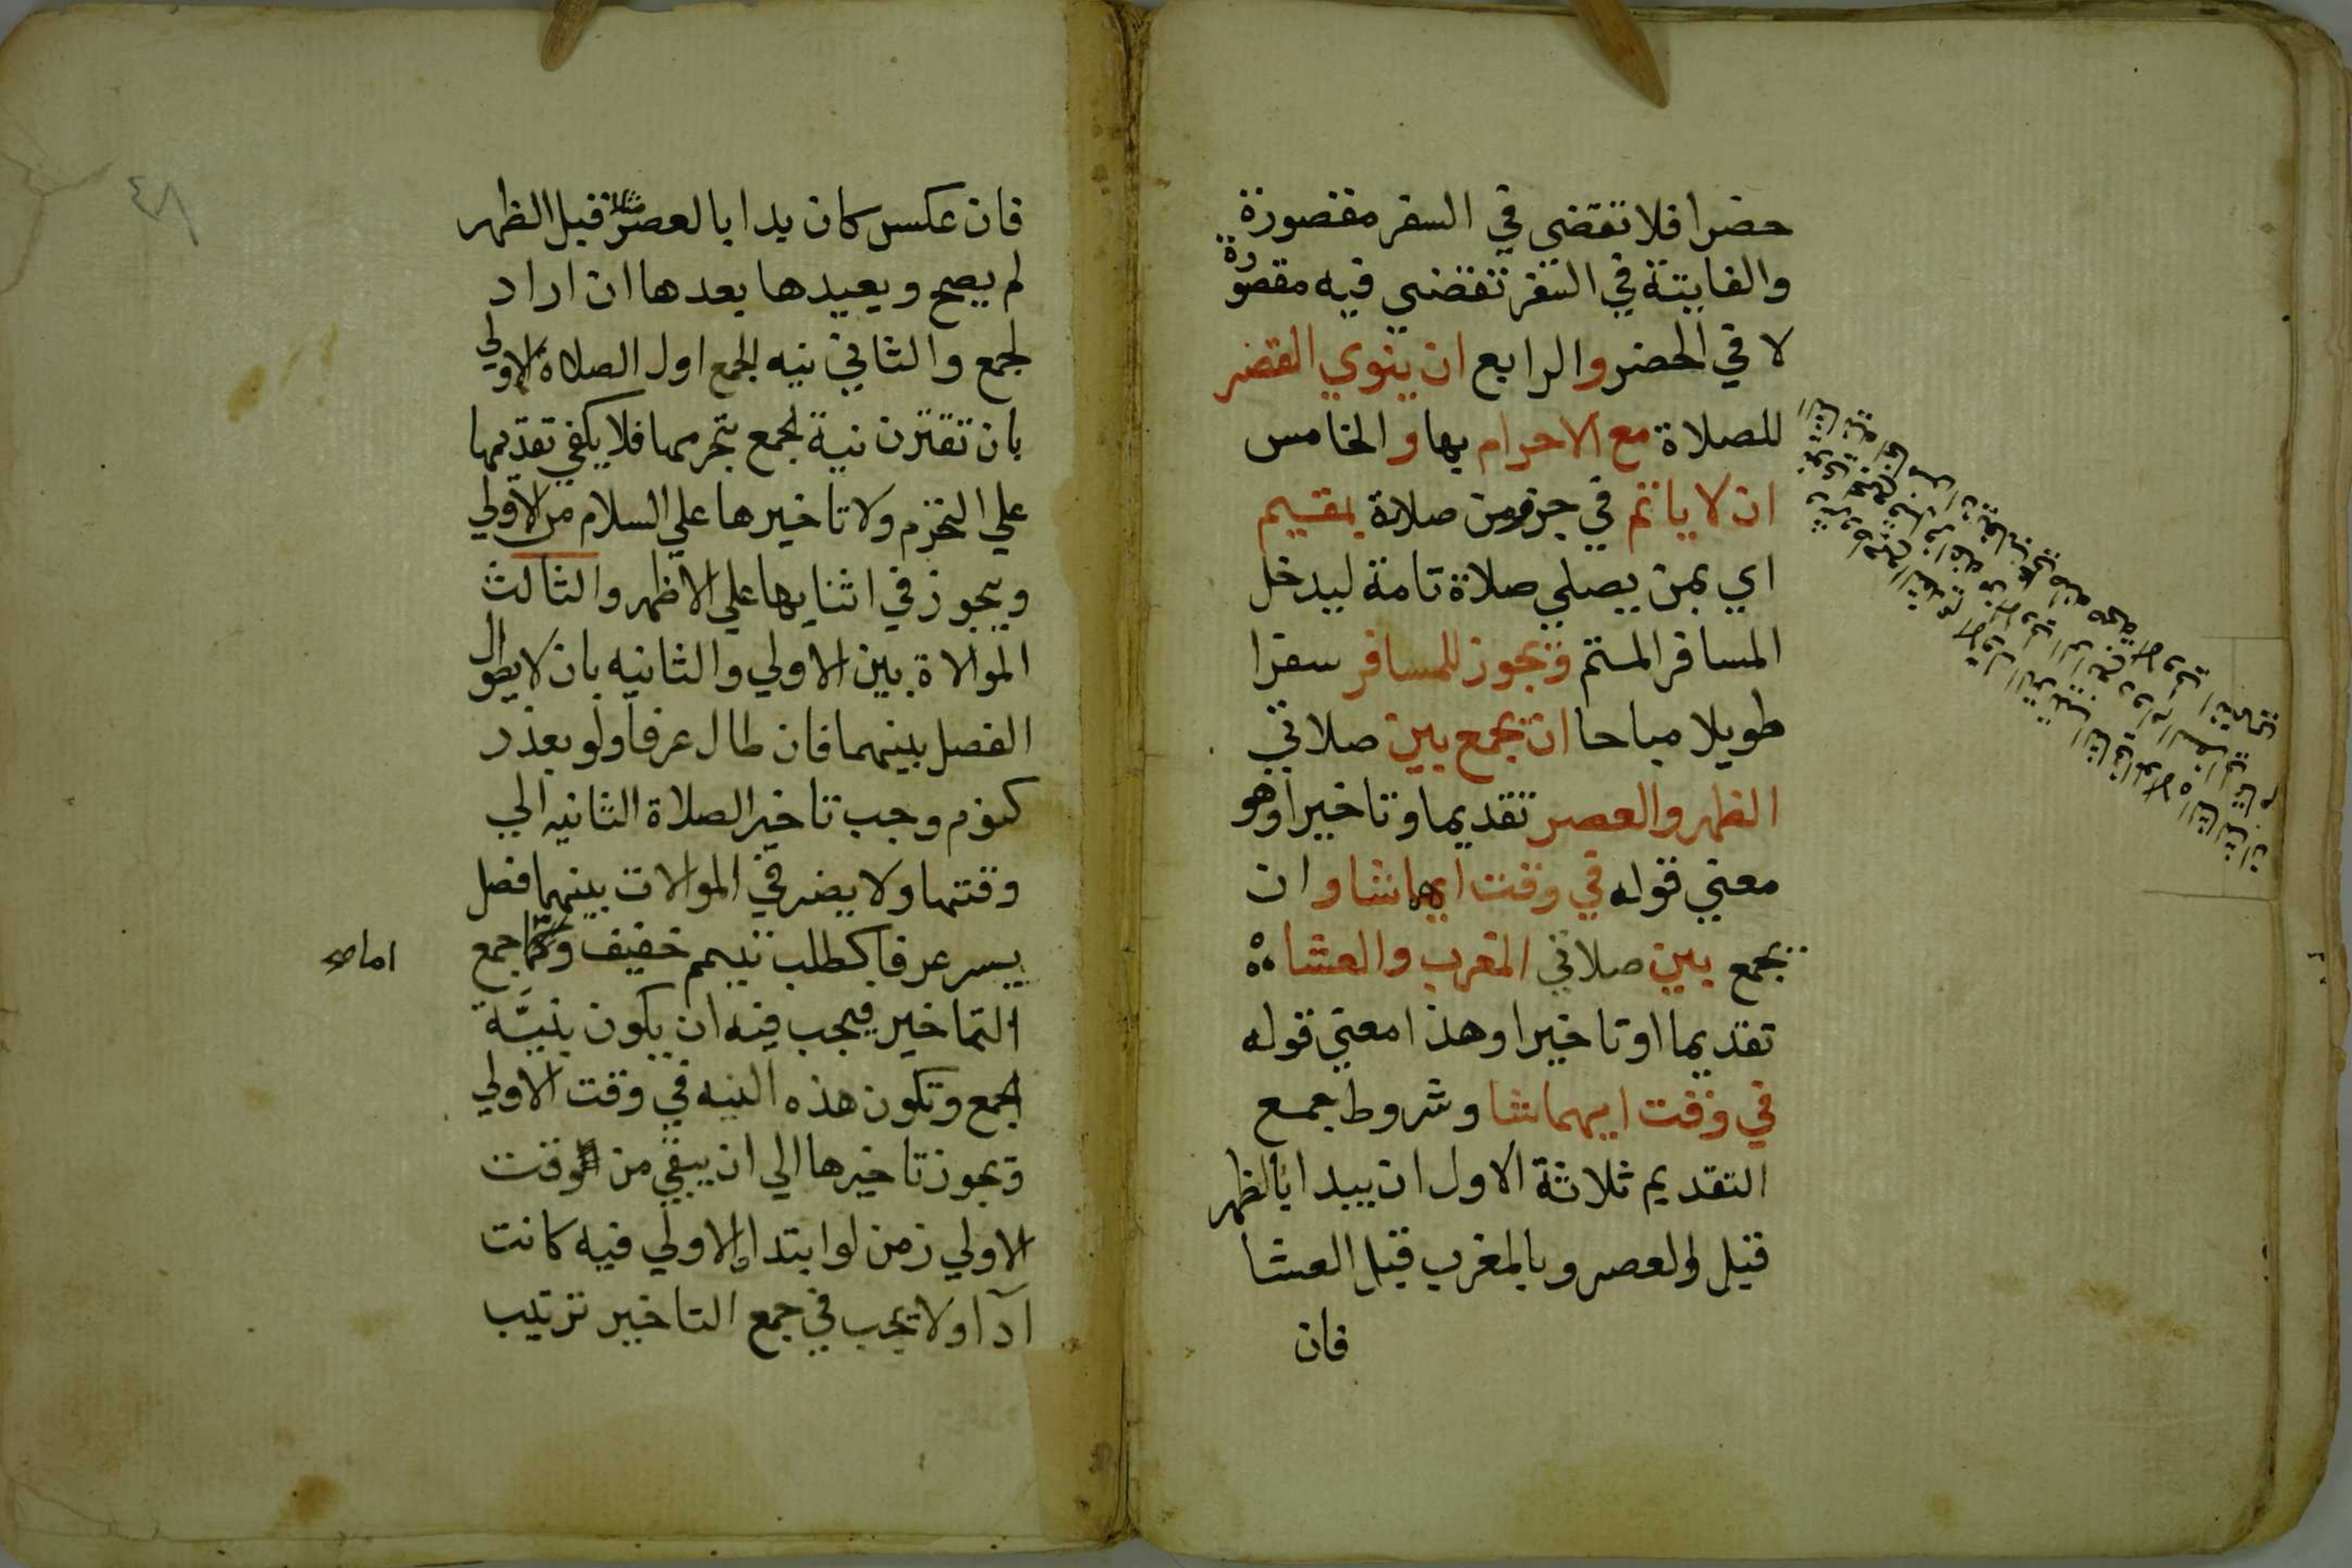 حضرا فلا تقضي في السفر مقصورة
والفايتة في السفر تقضي فيه مقصورة
لا في الحضر والرابع ان ينوي القصر
للصلاة مع الاحرام بها والخامس
ان لا ياتم في جزء من صلاة بمقيم
اي بمن يصلي صلاة تامة ليدخل
المسافر المتم ويجوز للمسافر سفرا
طويلا مباحا ان يجمع بين صلاتي
الظهر والعصر تقديما وتاخيرا وهو
معني قوله في وقت ايهما شا وان
يجمع بين صلاتي المغرب والعشاء
تقديما او تاخيرا وهذا معني قوله
في وقت ايهما شا وشروط جمع
التقديم ثلاثة الاول ان يبدا بالظهر
قبل العصر وبالمغرب قبل العشا
فان
٤٨
فان عكس كان بدا بالعصر مثلا قبل الظهر
لم يصح ويعيدها بعدها ان اراد
لجمع والثاني نيه الجمع اول الصلاة الاولي
بان تقترن نية لجمع بتحرمها فلا يكفي تقديمها
علي التحرم ولا تاخيرها علي السلام من الاولي
ويجوز في اثنايها علي الاظهر والثالث
الموالاة بين الاولي والثانيه بان لا يطول
الفصل بينهما فان طال عرفا ولو بعذر
كنوم وجب تاخير الصلاة الثانيه الي
وقتها ولا يضر في الموالات بينهما فصل
يسير عرفا كطلب تيمم خفيف جمع
اما صح
التاخير فيجب فيه ان يكون بنيَّة
الجمع وتكون هذه النيه في وقت الاولي
ويجوز تاخيرها الي ان يبقي من وقت
الاولي زمن لو ابتدا الاولي فيه كانت
آدا ولا يجب في جمع التاخير ترتيب